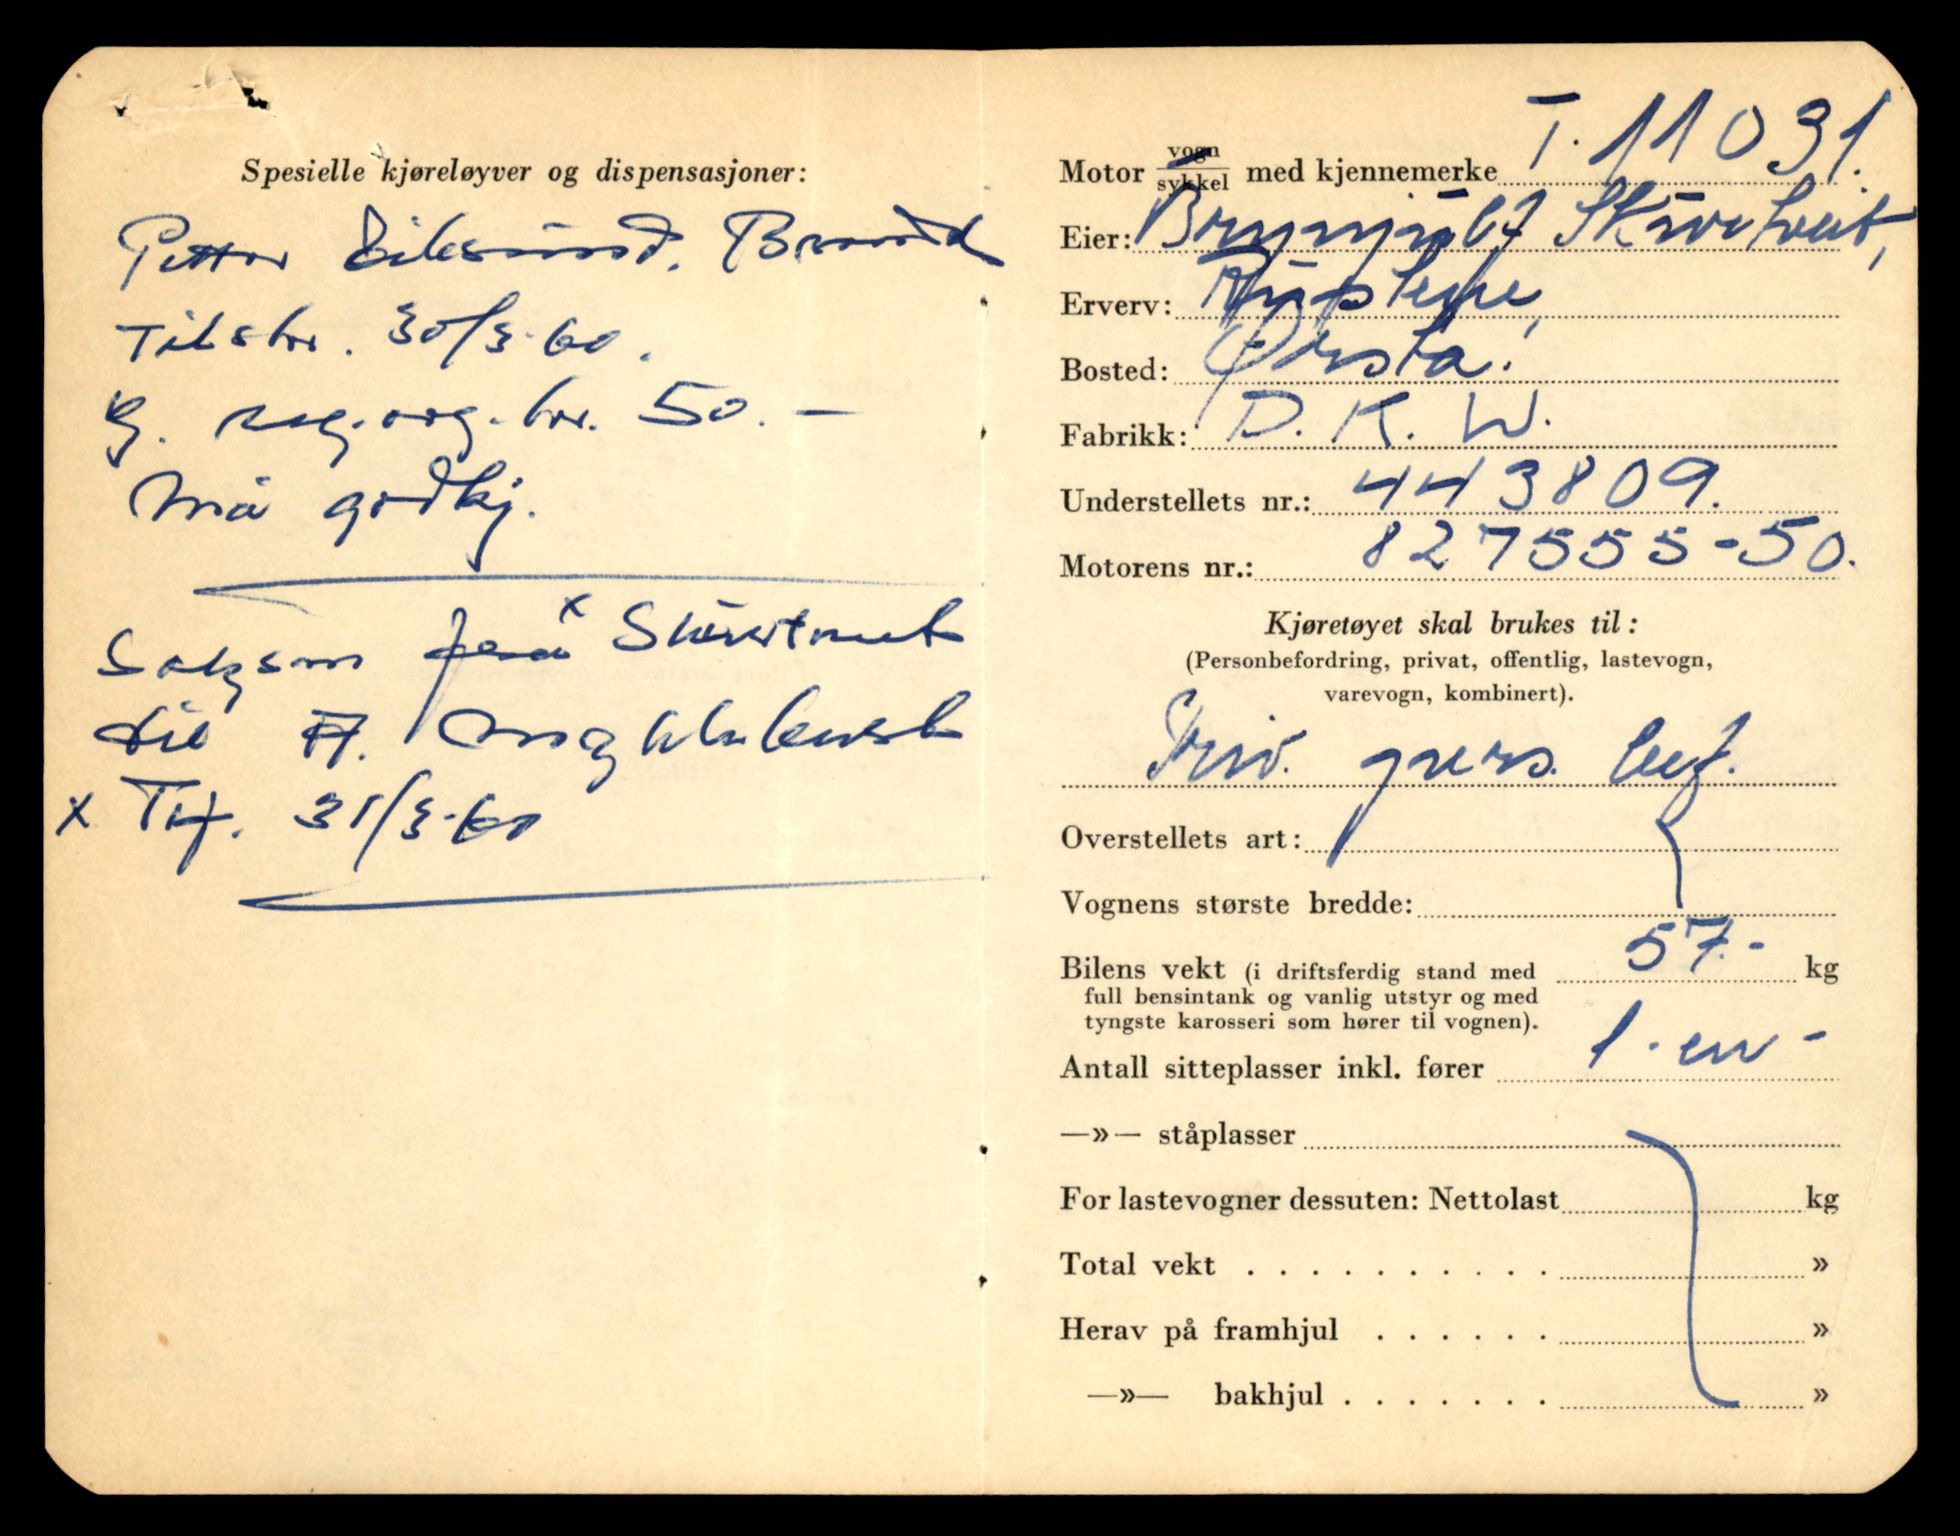 Spesielle kjøreløyver og dispensasjoner:
Petter Eiksund. Brandal
Tilstr. 30/3-60.
g. reg. avg. kr. 50.-
Må godkj.
Salgsm fra x Skåretveit
til A.
x Tlf. 31/3-60
Motor vogn/sykkel med kjennemerke T. 11031.
Eier: Brynjulf Skåretveit,
Erverv:
Bosted: Ørsta.
Fabrikk: D. K. W.
Understellets nr.: 443809.
Motorens nr.: 827555-50.
Kjøretøyet skal brukes til:
(Personbefordring, privat, offentlig, lastevogn,
varevogn, kombinert).
Priv. pers. bef.
Overstellets art:
Vognens største bredde:
Bilens vekt (i driftsferdig stand med 57.- kg
full bensintank og vanlig utstyr og med
tyngste karosseri som hører til vognen).
Antall sitteplasser inkl. fører 1 - en -
—»— ståplasser
For lastevogner dessuten: Nettolast kg
Total vekt . . . . . . . . . . »
Herav på framhjul . . . . . . »
—»— bakhjul . . . . . . . »